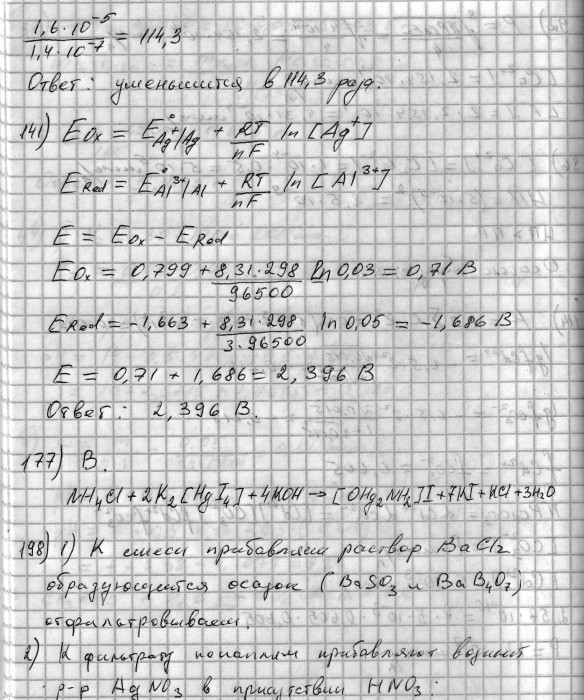 1,6·10⁻⁵ / 1,4·10⁻⁷ = 114,3
Ответ: уменьшится в 114,3 раза.
141) E Ox = E° Ag⁺/Ag + RT/nF ln [Ag⁺]
E Red = E° Al³⁺/Al + RT/nF ln [Al³⁺]
E = E Ox – E Red
E Ox = 0,799 + 8,31·298/96500 ln 0,03 = 0,71 В
E Red = -1,663 + 8,31·298/3·96500 ln 0,05 = -1,686 В
E = 0,71 + 1,686 = 2,396 В
Ответ: 2,396 В.
177) В.
NH₄Cl + 2K₂[HgI₄] + 4KOH → [OHg₂NH₂]I + 7KI + KCl + 3H₂O
198) 1) К смеси прибавляем раствор BaCl₂
образующейся осадок (BaSO₃ и BaB₄O₇)
отфильтровываем.
2) К фильтрату прибавляют
р-р AgNO₃ в присутствии HNO₃.